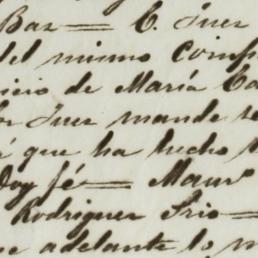 Bar= C. Juez
del mismo Comp
icio de María Ca
or Juez mande se
é que ha hecho
Doy fé= Maur
Rodriguez Srio=
ue adelante lo m